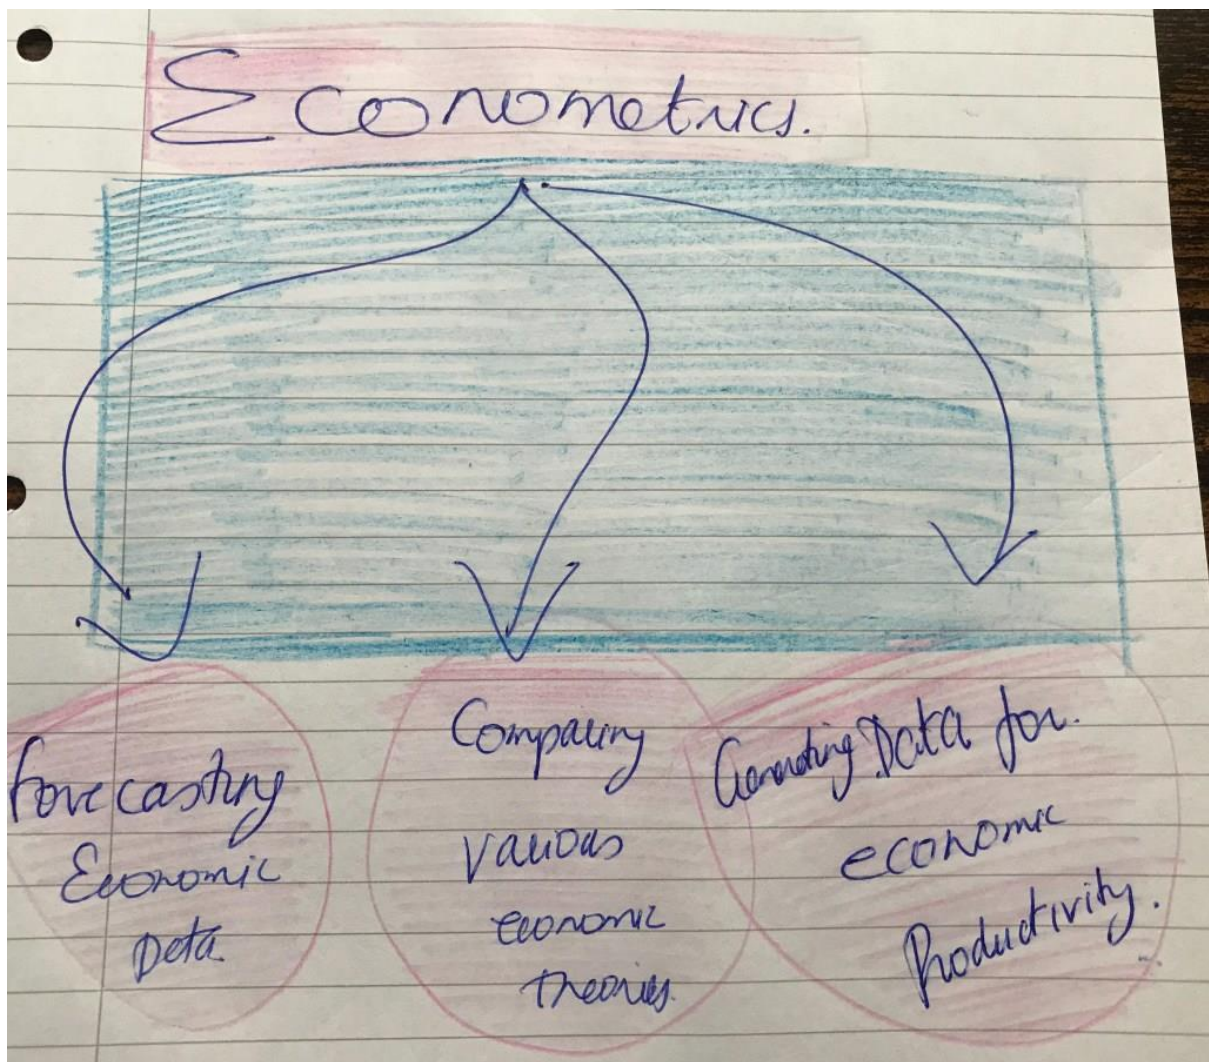 Econometrics.
Forecasting
Economic
Data
Comparing
various
economic
theories.
Generating Data for.
economic
Productivity.